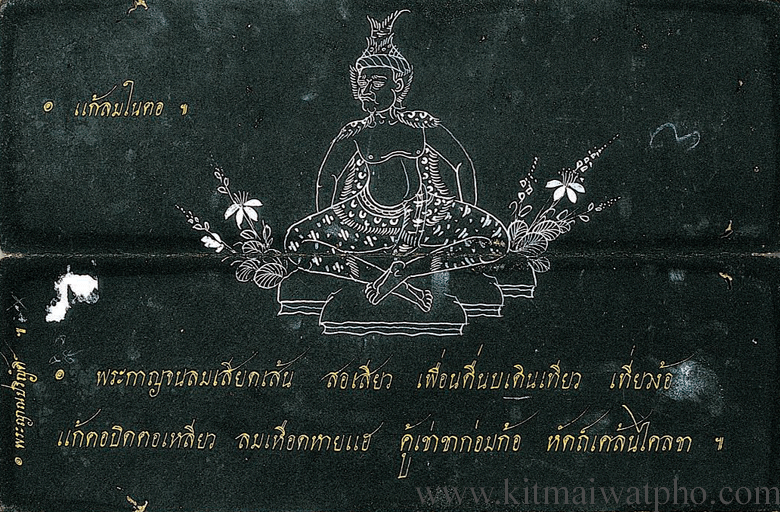 ๏ แก้ลมในคอ ๚
๏ พระกาญจนลมเสียดเส้น สอเสียว
เพื่อนคื่นบเดินเทียว เที่ยวง้อ
แก้คอบิดคอเหลียว ลมเหือดหายแฮ
คู้เข่าขาก่อมก้อ หัดถ์เคล้นไคลขา ๚
www.kitmaiwatpho.com